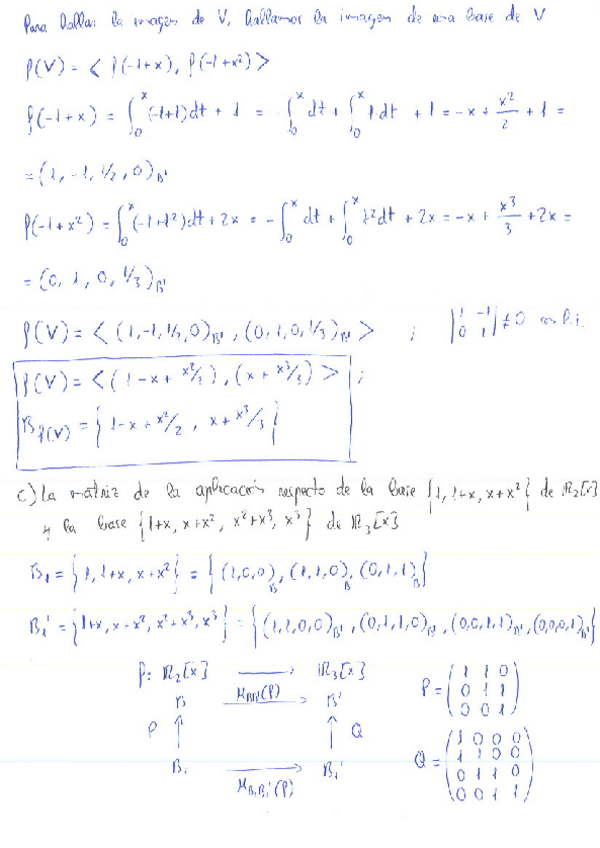 Para hallar la imagen de V, hallamos la imagen de una base de V
f(V) = < f(-1+x), f(-1+x²) >
f(-1+x) = ∫₀ˣ (-1+t)dt + 1 = -∫₀ˣ dt + ∫₀ˣ t dt + 1 = -x + x²/2 + 1 =
= (1, -1, 1/2, 0)_B'
f(-1+x²) = ∫₀ˣ (-1+t²)dt + 2x = -∫₀ˣ dt + ∫₀ˣ t² dt + 2x = -x + x³/3 + 2x =
= (0, 1, 0, 1/3)_B'
f(V) = < (1, -1, 1/2, 0)_B', (0, 1, 0, 1/3)_B' > ; |1 -1; 0 1| ≠ 0 son l.i.
f(V) = < (1 - x + x²/2), (x + x³/3) > ;
B_f(V) = { 1 - x + x²/2 , x + x³/3 }
c) La matriz de la aplicación respecto de la base {1, 1+x, x+x²} de R₂[x]
y la base {1+x, x+x², x²+x³, x³} de R₃[x]
B₁ = {1, 1+x, x+x²} = {(1,0,0)_B, (1,1,0)_B, (0,1,1)_B}
B₁' = {1+x, x+x², x²+x³, x³} = {(1,1,0,0)_B', (0,1,1,0)_B', (0,0,1,1)_B', (0,0,0,1)_B'}
f: R₂[x] → R₃[x]
B M_BB'(f) B'
P ↑ ↑ Q
B₁ M_B₁B₁'(f) B₁'
P = (1 1 0
0 1 1
0 0 1)
Q = (1 0 0 0
1 1 0 0
0 1 1 0
0 0 1 1)